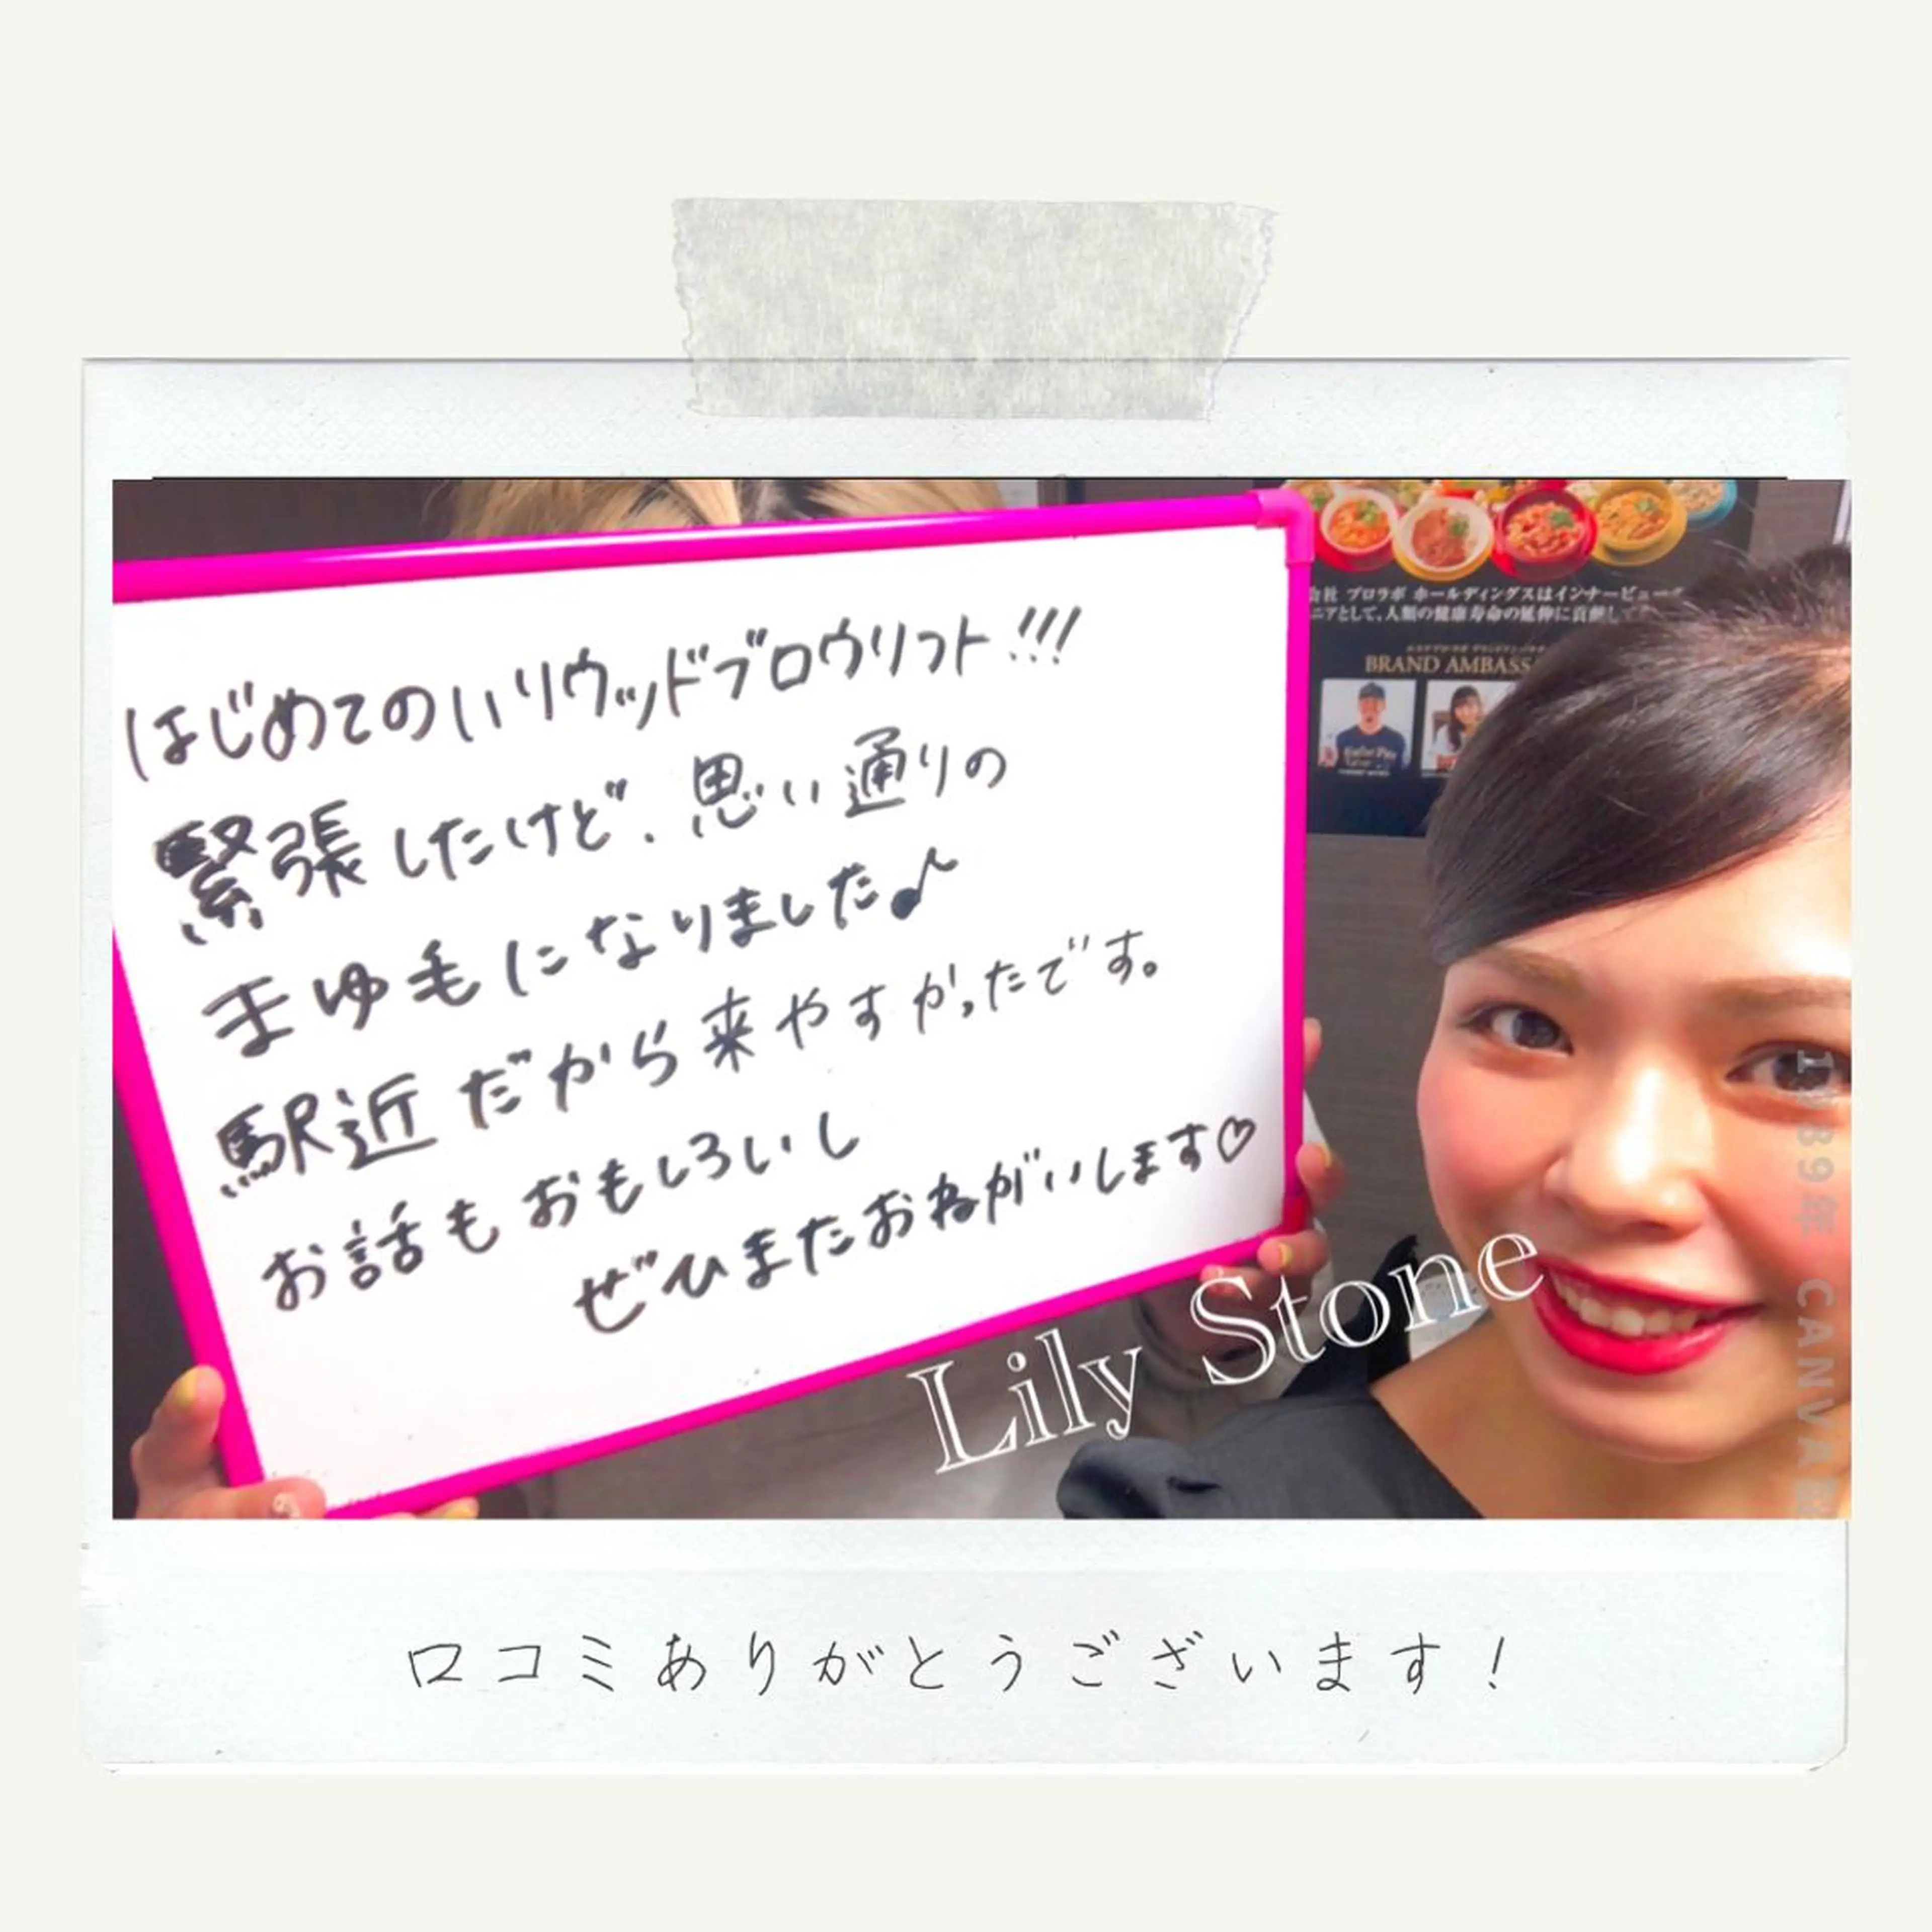 会社 プロラボ ホールディングスはインナービュー
ニアとして、人類の健康寿命の延伸に貢献して
BRAND AMBASS
はじめてのハリウッドブロウリフト!!!
緊張したけど、思い通りの
まゆ毛になりました♪
駅近だから来やすかったです。
お話もおもしろいし
ぜひまたおねがいします♡
Lily Stone
1989年 CANVA
口コミありがとうございます!